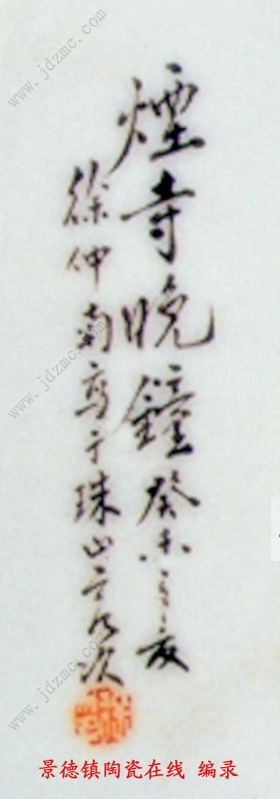 煙寺晚鐘癸未之夏
徐仲南寫于珠山客次
景德镇陶瓷在线 编录
www.jdzmc.com
www.jdzmc.com
www.jdzmc.com
www.jdzmc.com